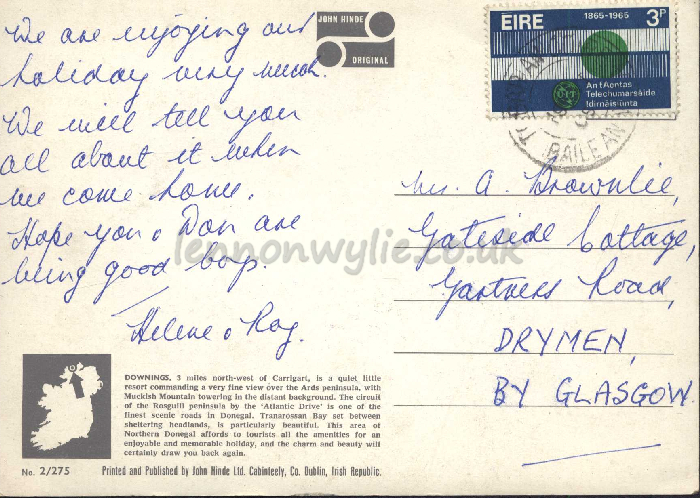 We are enjoying our
holiday very much.
We will tell you
all about it when
we come home.
Hope you & Dan are
being good boys.
Helene & Roy.
JOHN HINDE
ORIGINAL
EIRE
1865-1965
3P
An tAontas
Teleachumarsáide
Idirnáisiúnta
BAILE AN
A. Brownlie,
Gateside Cottage,
Gartness Road,
DRYMEN,
BY GLASGOW.
lennonwylie.co.uk
DOWNINGS, 3 miles north-west of Carrigart, is a quiet little
resort commanding a very fine view over the Ards peninsula, with
Muckish Mountain towering in the distant background. The circuit
of the Rosguill peninsula by the 'Atlantic Drive' is one of the
finest scenic roads in Donegal. Tranarossan Bay set between
sheltering headlands, is particularly beautiful. This area of
Northern Donegal affords to tourists all the amenities for an
enjoyable and memorable holiday, and the charm and beauty will
certainly draw you back again.
No. 2/275
Printed and Published by John Hinde Ltd. Cabinteely, Co. Dublin, Irish Republic.